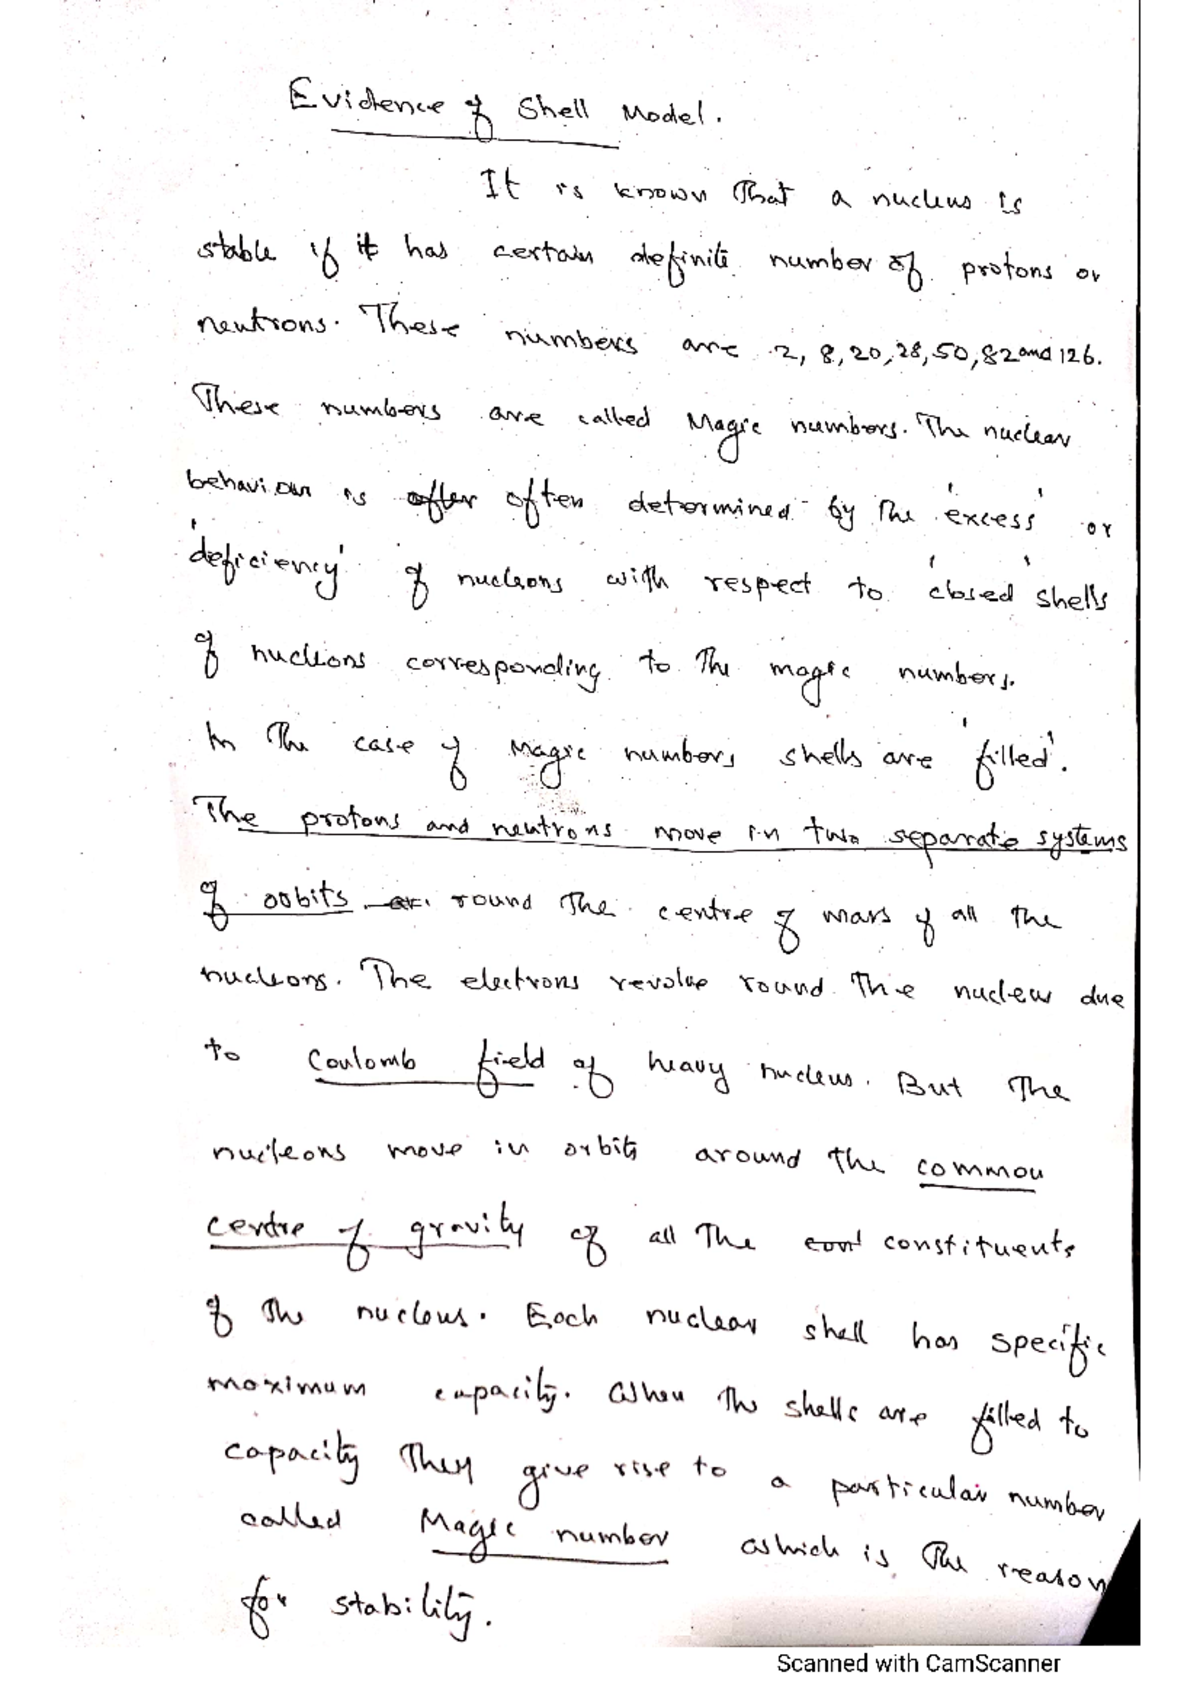 Evidence of Shell Model.
It is known That a nucleus is
stable if it has certain definite number of protons or
neutrons. These numbers are 2, 8, 20, 28, 50, 82 and 126.
These numbers are called Magic numbers. The nuclear
behaviour is after often determined by The 'excess' or
'deficiency' of nucleons with respect to 'closed' shells
of nucleons corresponding to The magic numbers.
In The case of Magic numbers shells are 'filled'.
The protons and neutrons move in two separate systems
of orbits ar. round The centre of mass of all the
nucleons. The electrons revolve round The nucleus due
to Coulomb field of heavy nucleus. But The
nucleons move in orbits around the common
centre of gravity of all The cont constituents
of The nucleus. Each nuclear shell has specific
maximum capacity. When The shells are filled to
capacity They give rise to a particular number
called Magic number which is The reason
for stability.
Scanned with CamScanner